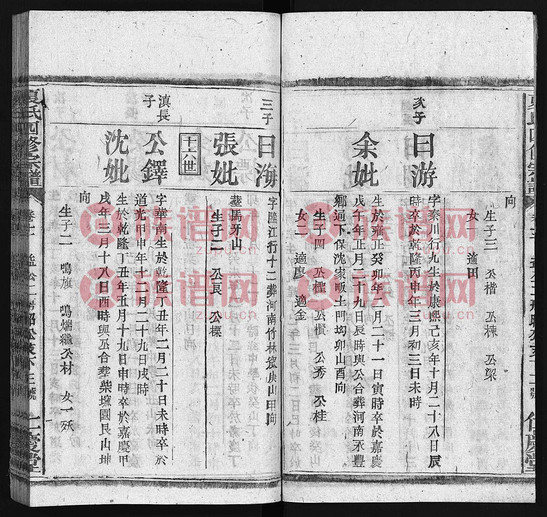 向
生子三 公楷 公棟 公梁
女一 適田
次子
日游
字泰川行九生於康熙己亥年十月二十八日辰
時卒於乾隆丙申年三月初三日未時
余妣
生於雍正癸卯年八月二十一日寅時卒於嘉慶
戊午年正月二十九日辰時與公合葬河南永豐
鄉通下保沈家畈土門坳卯山酉向
生子四 公秀 公桂
女二 適廖 適金
三子
日海
字隱江行十二葬河南竹林
山甲向
張妣
葬馬牙山
生子二 公長 公棟
十六世
滇長子
公鐸
字華南生於乾隆丁丑年二月二十日未時卒於
道光甲申年十二月二十九日戌時
沈妣
生於乾隆丁丑年五月十九日申時卒於嘉慶甲
戌年三月十八日酉時與公合葬柴壋園艮山坤
向
生子二 鳴旗 鳴烟繼公材 女一殀
夏氏四修宗譜
仁慶堂
族谱网